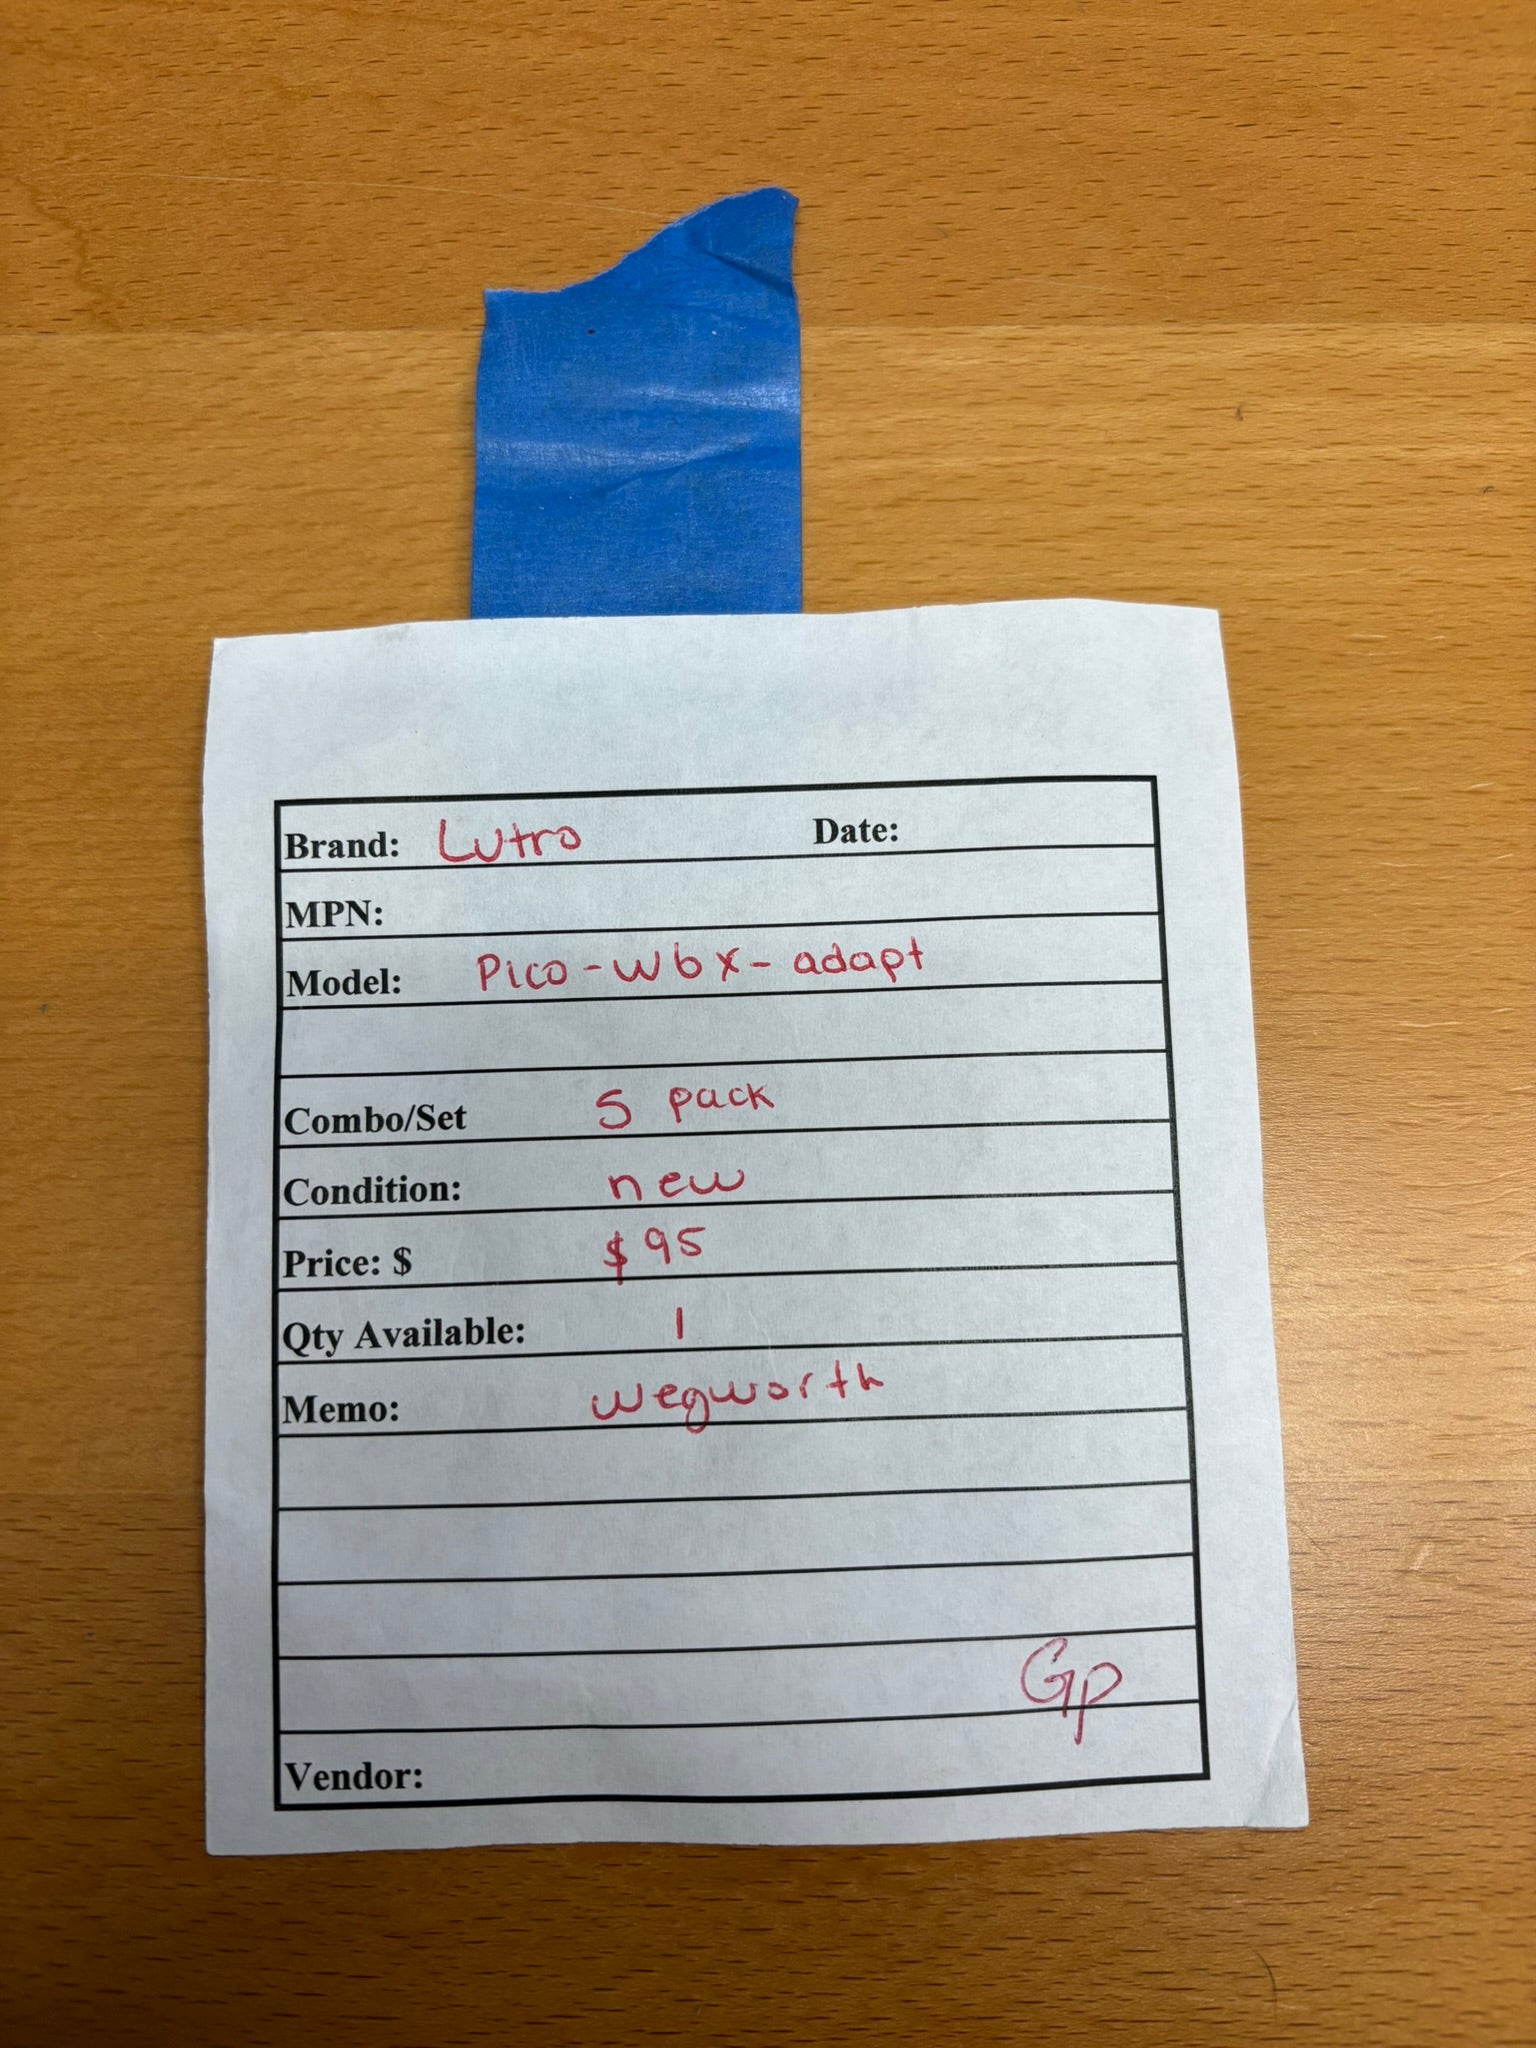 Brand: Lutro Date:
MPN:
Model: Pico-wbx-adapt
Combo/Set 5 pack
Condition: new
Price: $ $95
Qty Available: 1
Memo: wegworth
Gp
Vendor: